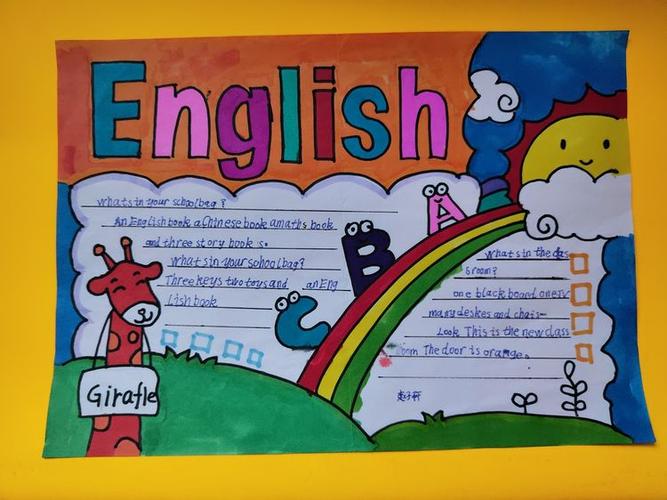 English
whats in your schoolbag?
An English book a Chinese book a maths book
and three story book s.
whats in your schoolbag?
Three keys two toys and an Eng
Lish book
C
B
A
Girafle
whats in the clas
Groom?
one black board one TV
many deskes and chair-
Look This is the new class
room The door is orange.